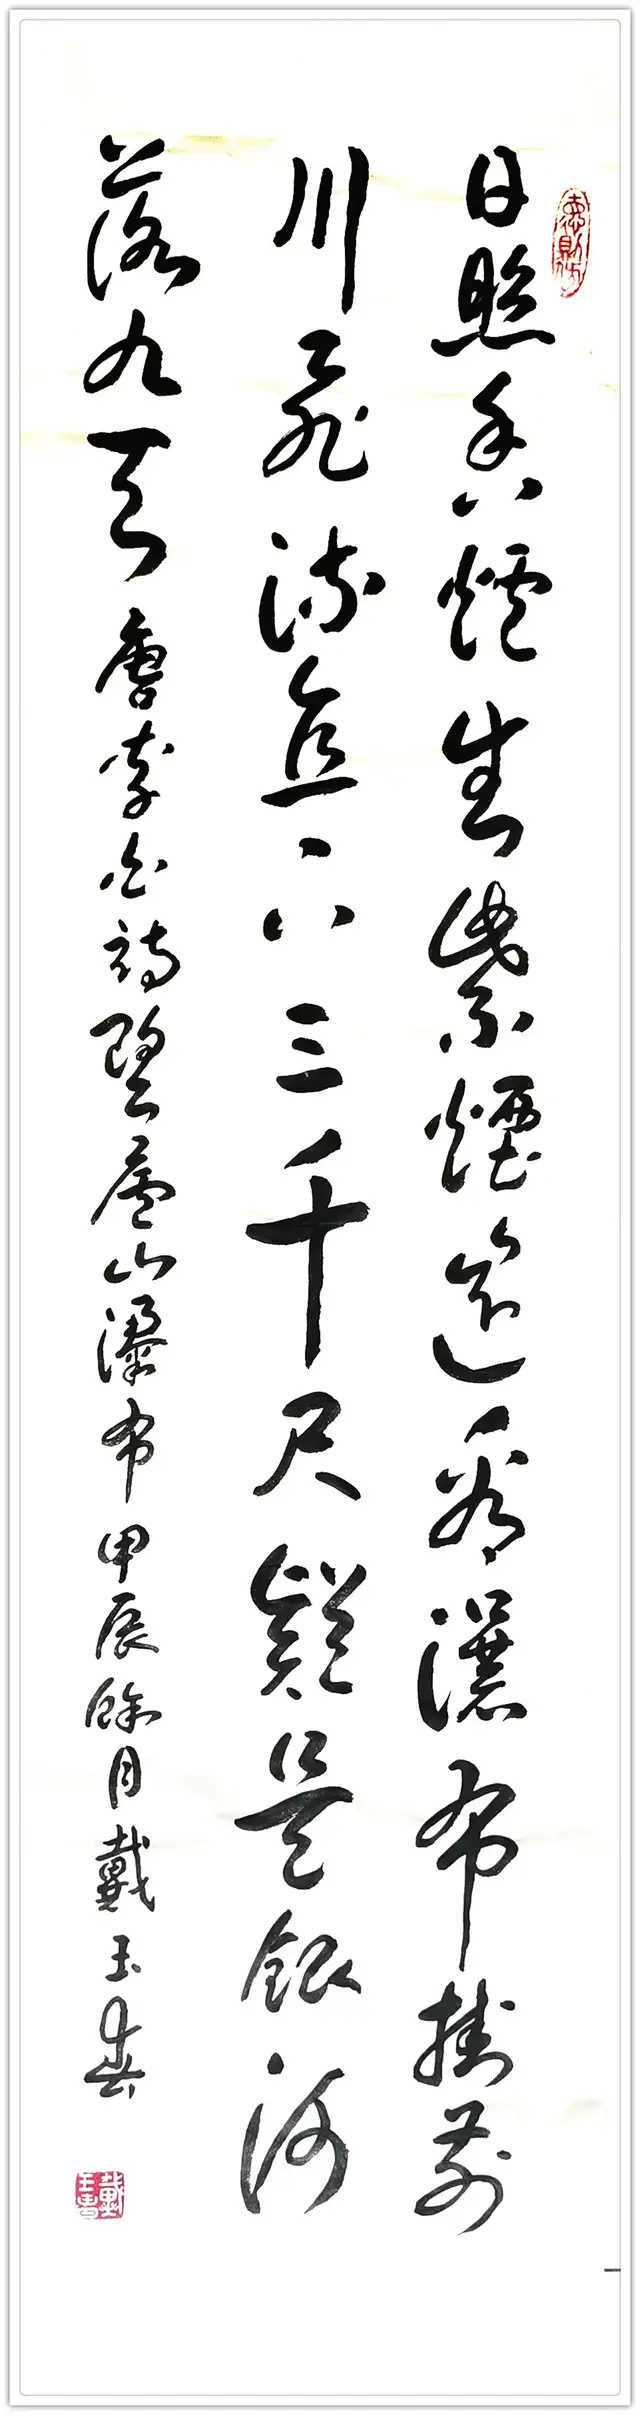 日照香爐生紫煙遙看瀑布掛前
川飛流直下三千尺疑是銀河
落九天唐李白詩望廬山瀑布甲辰餘月戴玉春